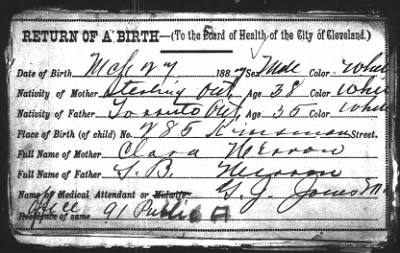 RETURN OF A BIRTH—(To the Board of Health of the City of Cleveland.)
Date of Birth Mch 27 1887 Sex Male Color White
Nativity of Mother Sterling Ont. Age 38 Color White
Nativity of Father Toronto Ont. Age 35 Color White
Place of Birth (of child) No. 285 Kinsman Street.
Full Name of Mother Clara Merron
Full Name of Father S. B. Merron
Name of Medical Attendant or Midwife G. J. Jones
Office
Residence of same 91 Public